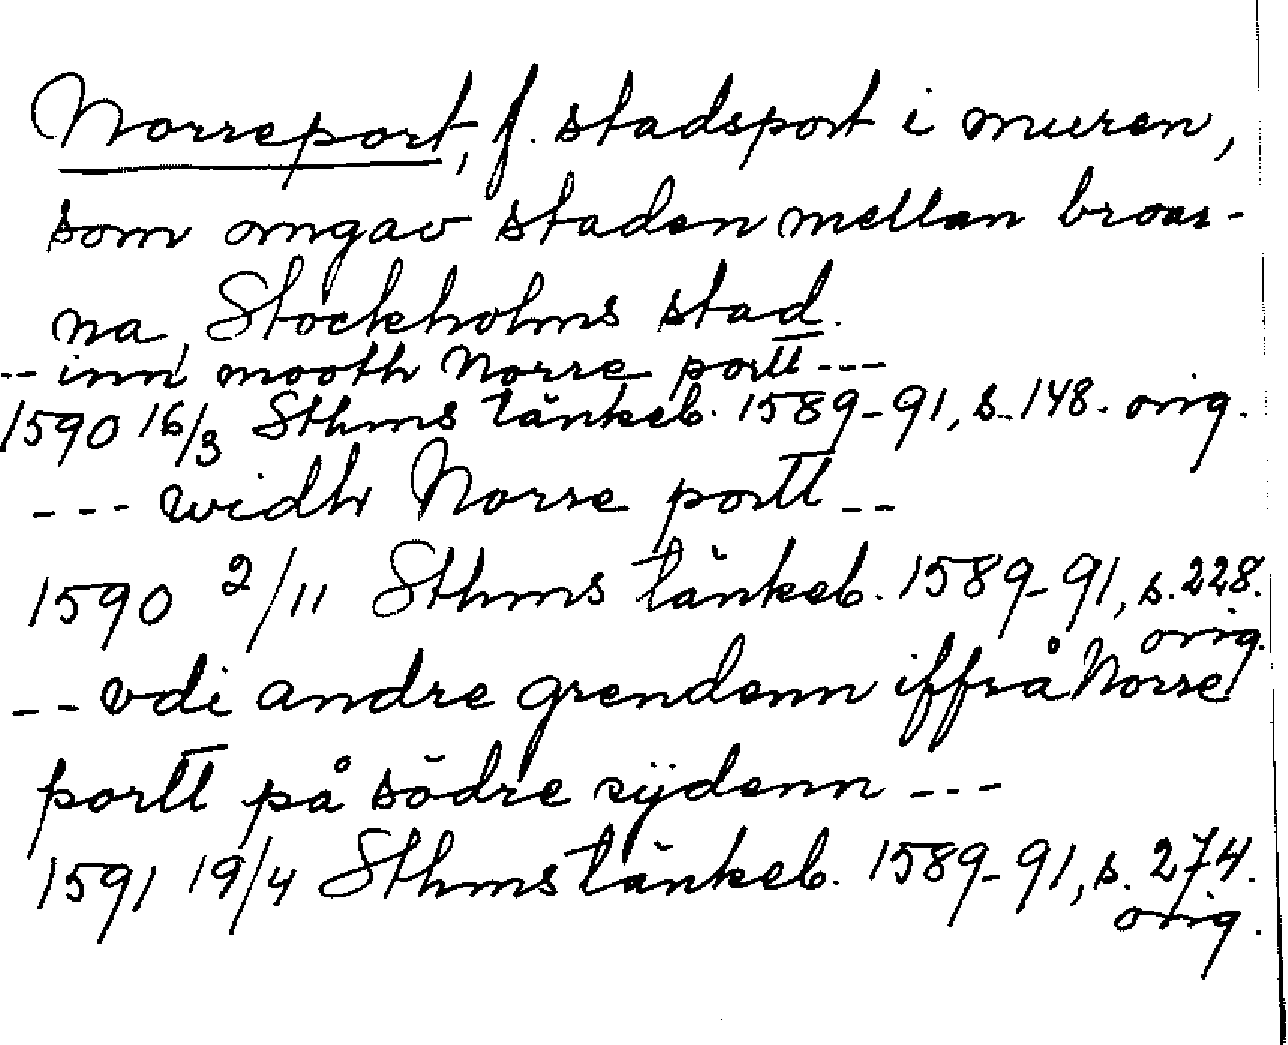 Norreport, f. stadsport i muren,
som omgav staden mellan broar-
na, Stockholms stad.
-- inn mooth Norre portt ---
1590 16/3 Sthms tänkeb. 1589-91, s. 148. orig.
--- widh Norre portt --
1590 2/11 Sthms tänkeb. 1589-91, s. 228.
orig.
-- vdi andre grendenn iffrå Norre
portt på södre sijdenn ---
1591 19/4 Sthms tänkeb. 1589-91, s. 274.
orig.